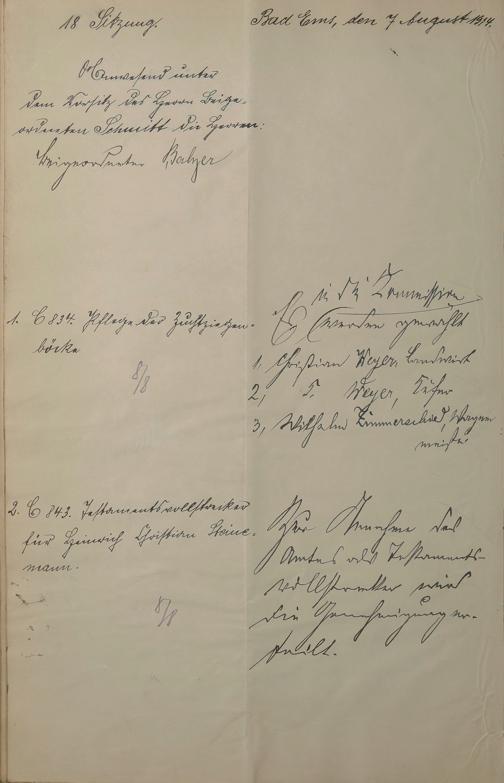 18 Sitzung.
Bad Ems, den 7 August 1914.
Anwesend unter
dem Vorsitz des Herrn Beige-
ordneten Schmitt die Herren:
Beigeordneter Balzer
1. C 834. Pflege der Zuchtziegen-
böcke
8/8
in die Kommission
Es werden gewählt
1, Christian Weyer, Landwirt
2, Weyer, Küfer
3, Wilhelm Zimmerschied, Wagner
meister
2. C 843. Testamentsvollstrecker
für Heinrich Christian Steine-
mann.
8/8
Zur Annahme des
Amtes als Testaments-
vollstrecker wird
die Genehmigung er-
teilt.